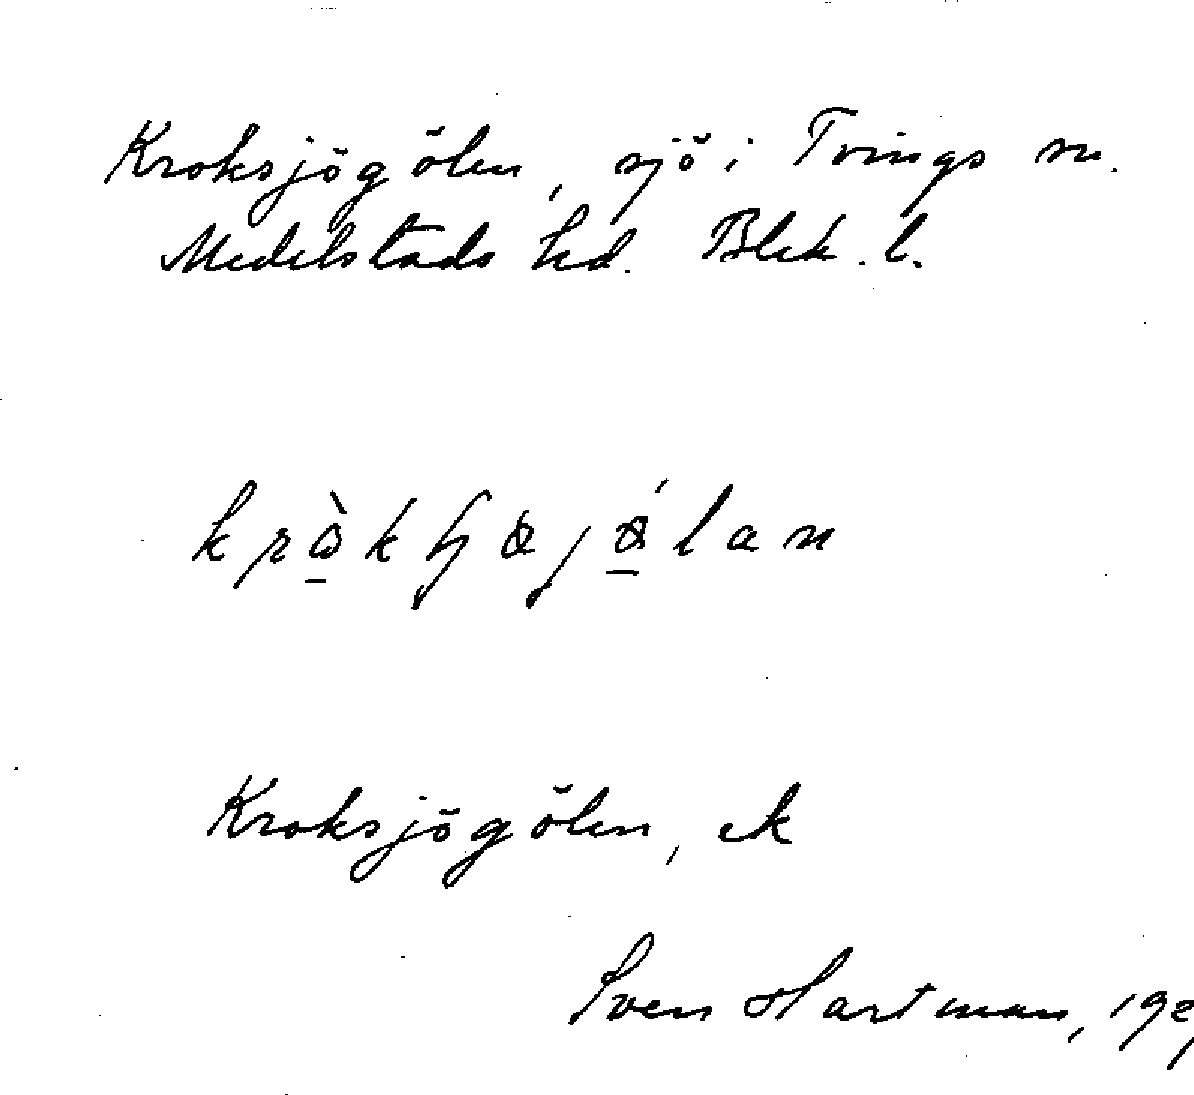 Kroksjögölen, sjö i Tvings sn.
Medelstads hd. Blek. l.
Kroksjögölen, ek
Sven Hartman,